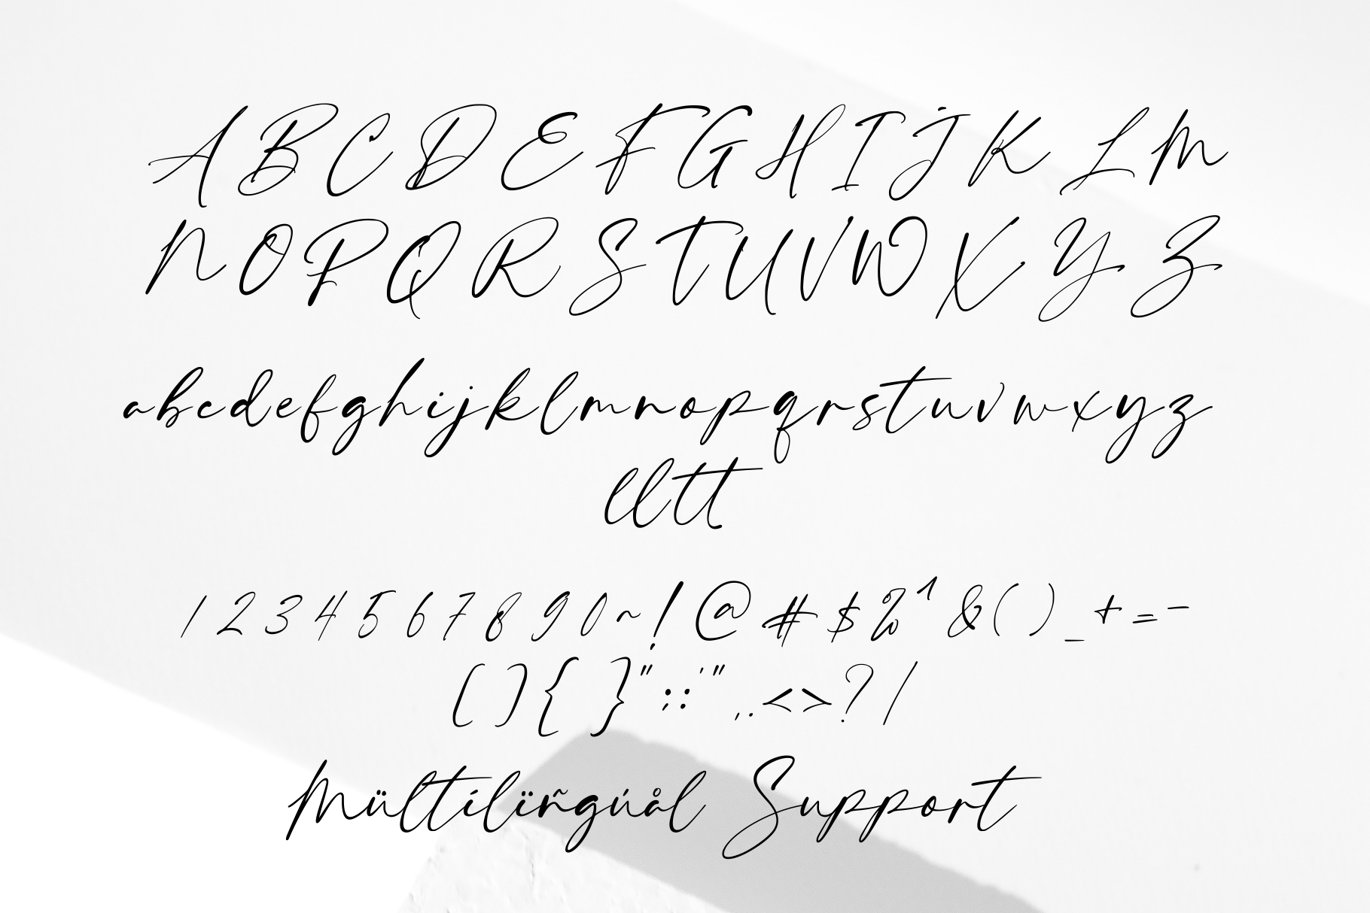 A B C D E F G H I J K L M
N O P Q R S T U V W X Y Z
a b c d e f g h i j k l m n o p q r s t u v w x y z
ll tt
1 2 3 4 5 6 7 8 9 0 ~ ! @ # $ % ^ & ( ) _ + = -
[ ] { } " ; : ' " , . < > ? /
Mültílïñgúål Support